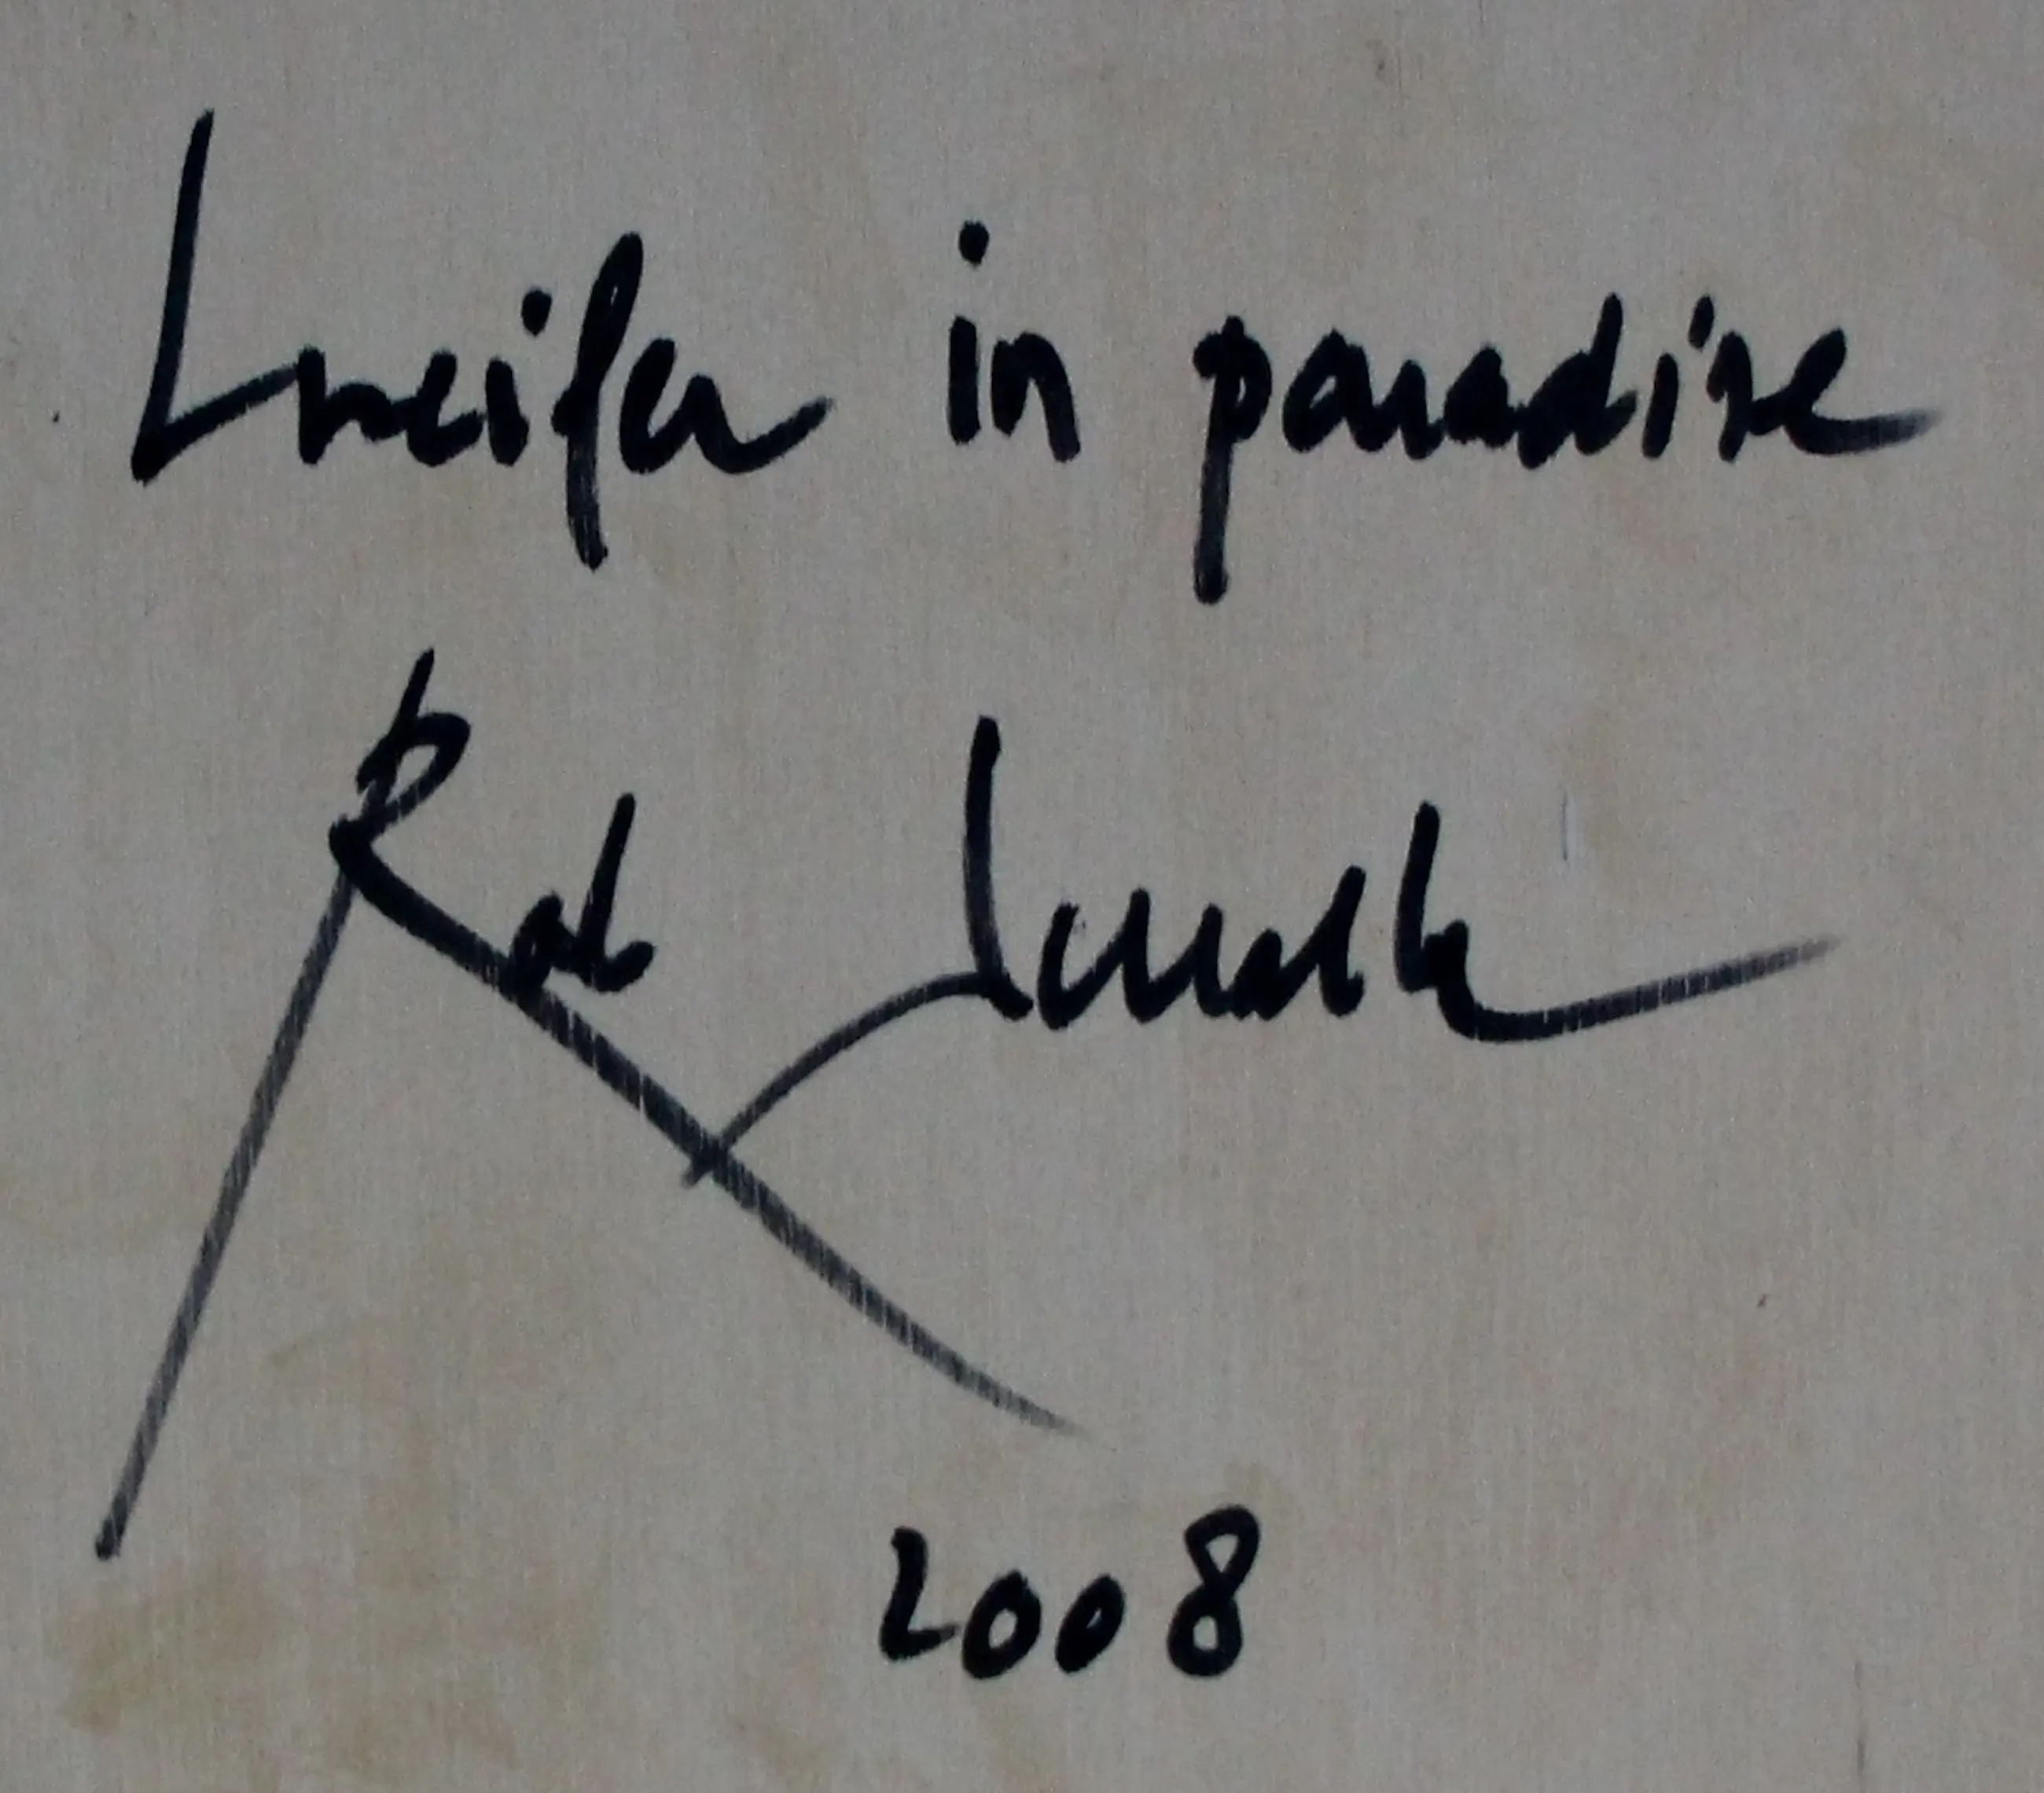 Lucifer in paradise
Rob
2008